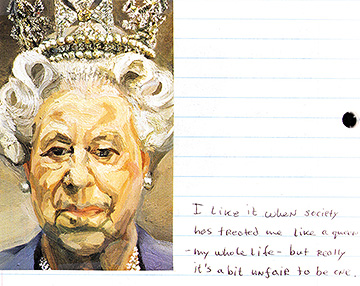 I like it when society
has treated me like a queen
- my whole life - but really
it's a bit unfair to be one.